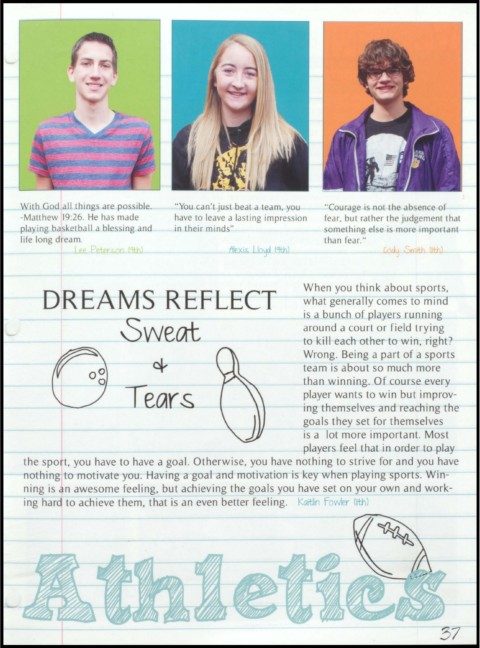 With God all things are possible.
-Matthew 19:26. He has made
playing basketball a blessing and
life long dream.
Lee Peterson (9th)
"You can't just beat a team, you
have to leave a lasting impression
in their minds"
Alexis Lloyd (9th)
"Courage is not the absence of
fear, but rather the judgement that
something else is more important
than fear."
Cody Smith (11th)
DREAMS REFLECT
Sweat
&
Tears
When you think about sports,
what generally comes to mind
is a bunch of players running
around a court or field trying
to kill each other to win, right?
Wrong. Being a part of a sports
team is about so much more
than winning. Of course every
player wants to win but improv-
ing themselves and reaching the
goals they set for themselves
is a lot more important. Most
players feel that in order to play
the sport, you have to have a goal. Otherwise, you have nothing to strive for and you have
nothing to motivate you. Having a goal and motivation is key when playing sports. Win-
ning is an awesome feeling, but achieving the goals you have set on your own and work-
ing hard to achieve them, that is an even better feeling. Kaitlin Fowler (11th)
Athletics
37